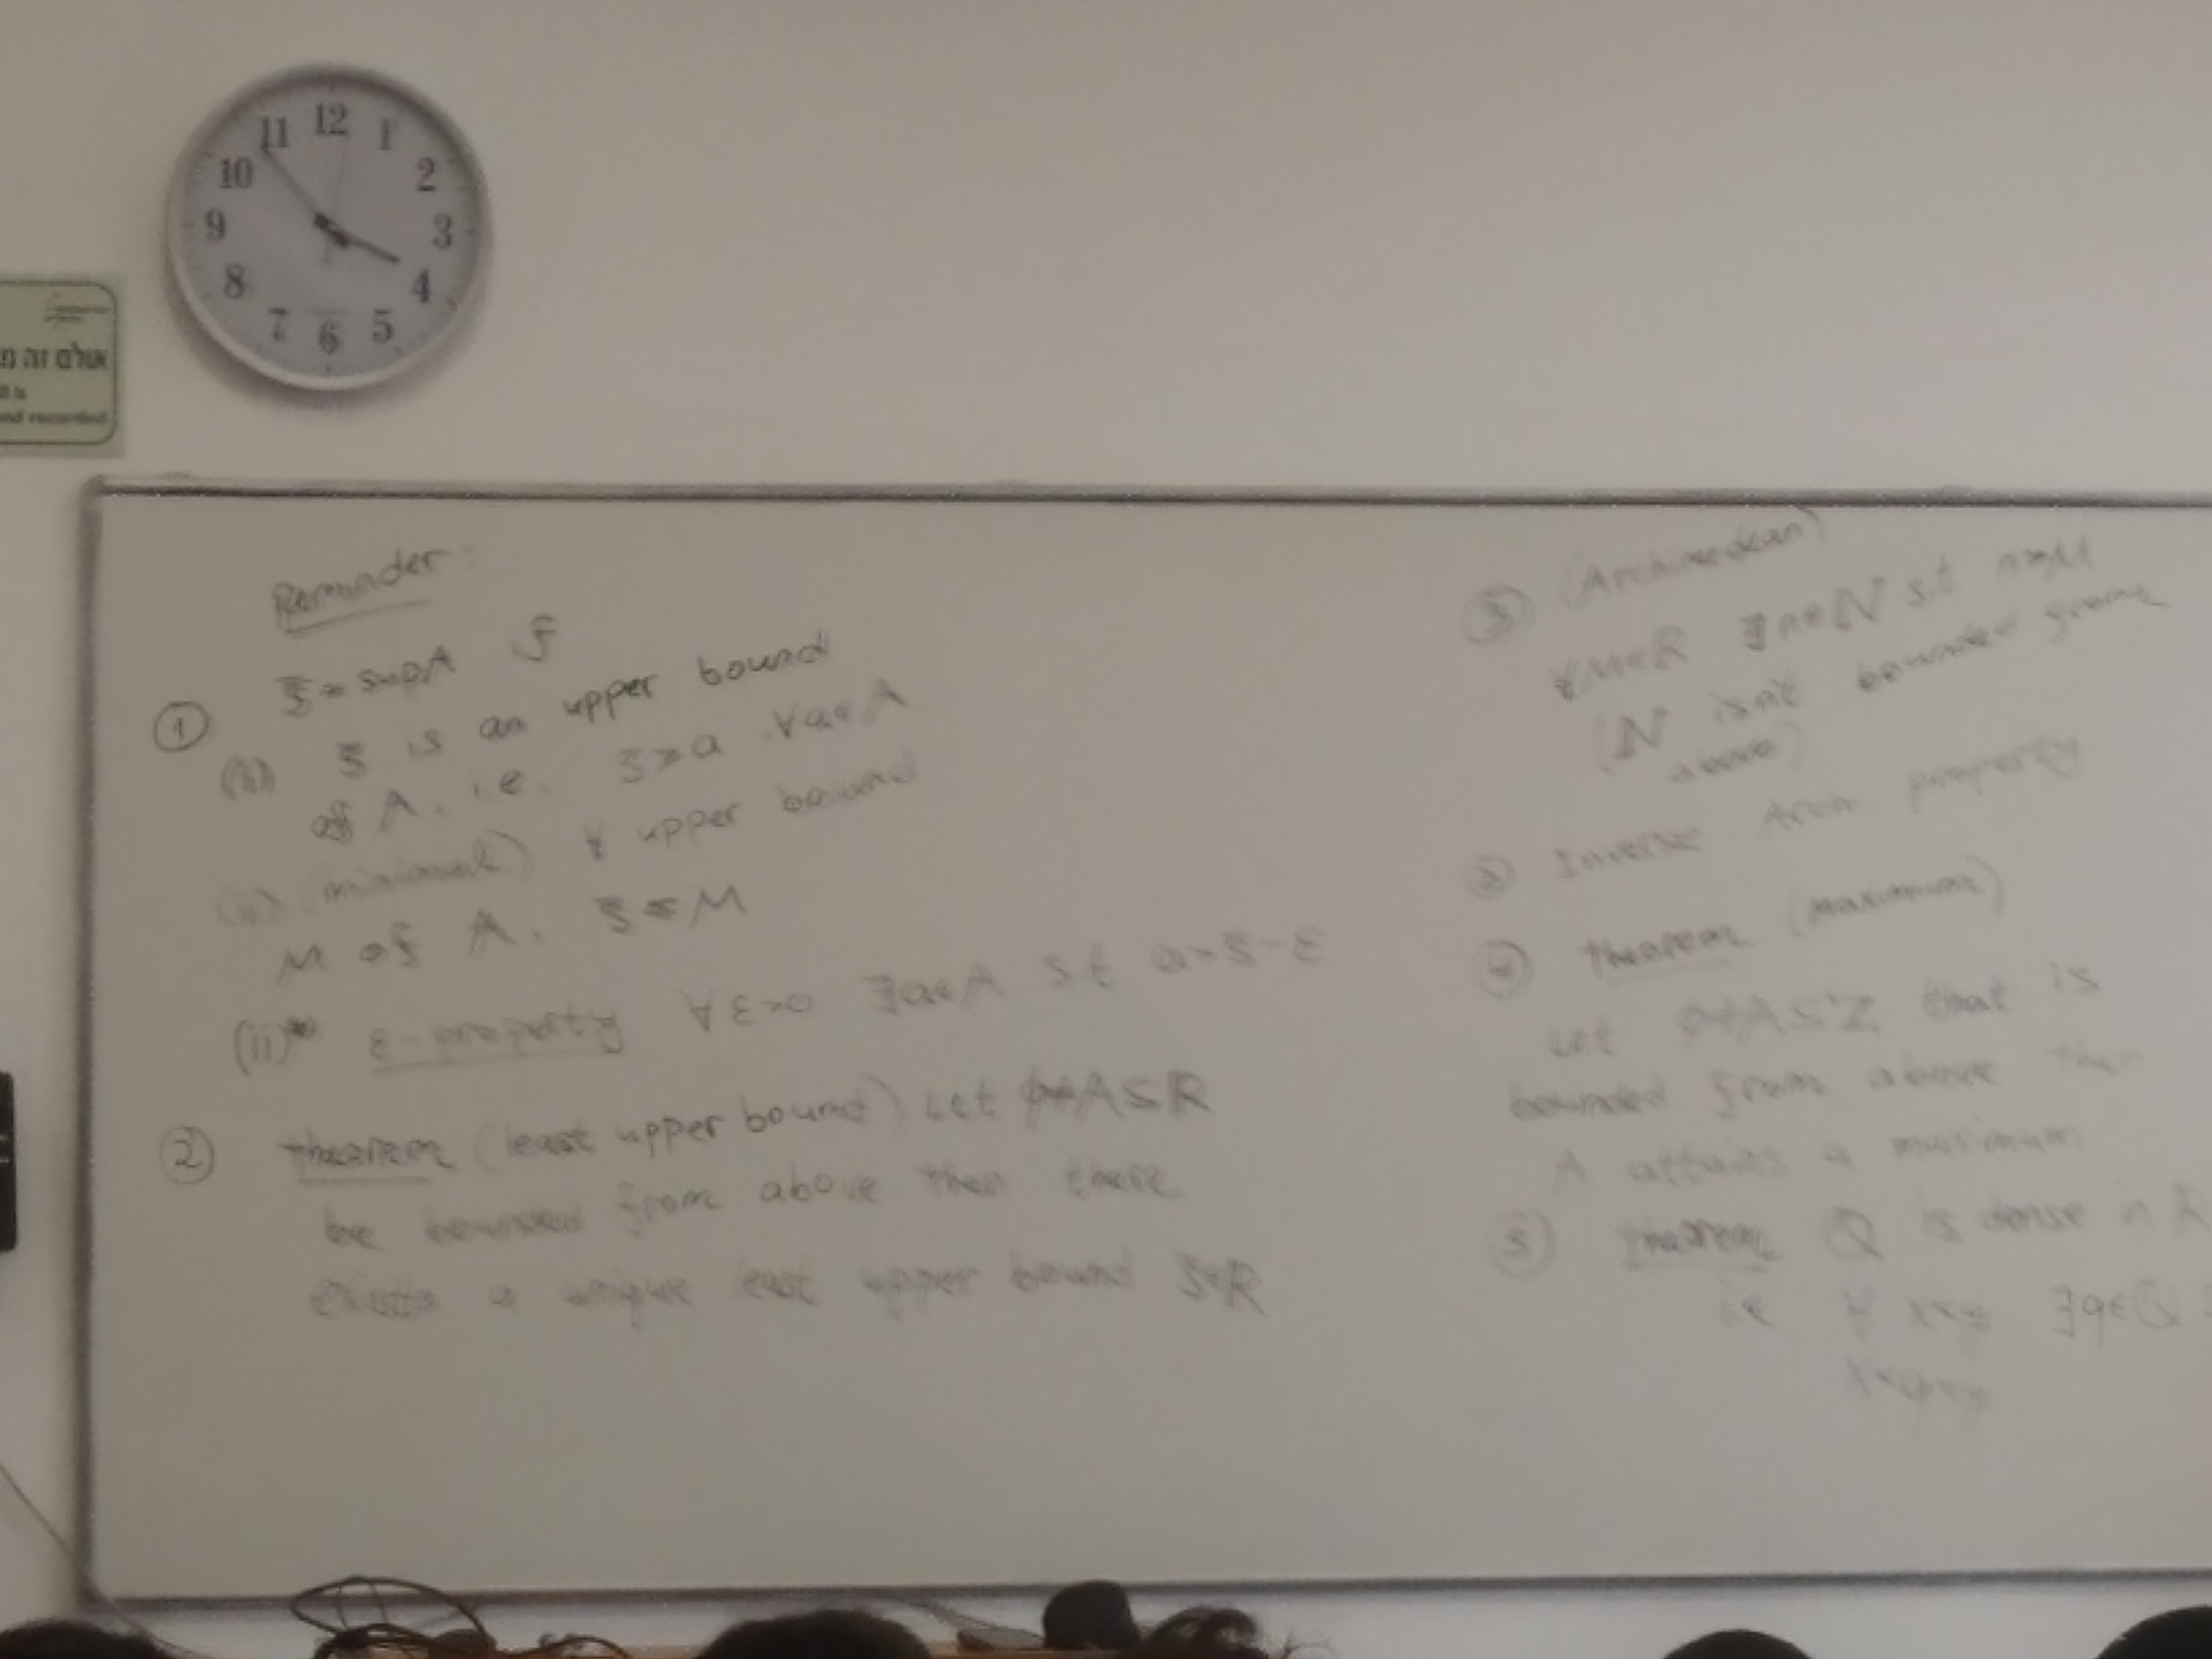 12
1
2
3
4
5
6
7
8
9
10
11
אולם זה מ
ll is
nd recorded
Reminder:
① ξ = sup A ξ
(i) ξ is an upper bound
of A. i.e. ξ ≥ a ∀a∈A
(ii) (minimal) ∀ upper bound
M of A. ξ ≤ M
(ii)* ε-property ∀ε>0 ∃a∈A st a>ξ-ε
② theorem (least upper bound) Let ∅≠A⊆ℝ
be bounded from above then there
exists a unique least upper bound ξ∈ℝ
③ (Archimedean)
∀M∈ℝ ∃n∈ℕ s.t n>M
(ℕ isn't bounded from
above)
③ Inverse Arch property
④ theorem (maximum)
Let ∅≠A⊆ℤ that is
bounded from above then
A attains a maximum
⑤ theorem ℚ is dense in ℝ
ie ∀ x<y ∃q∈ℚ
x<q<y